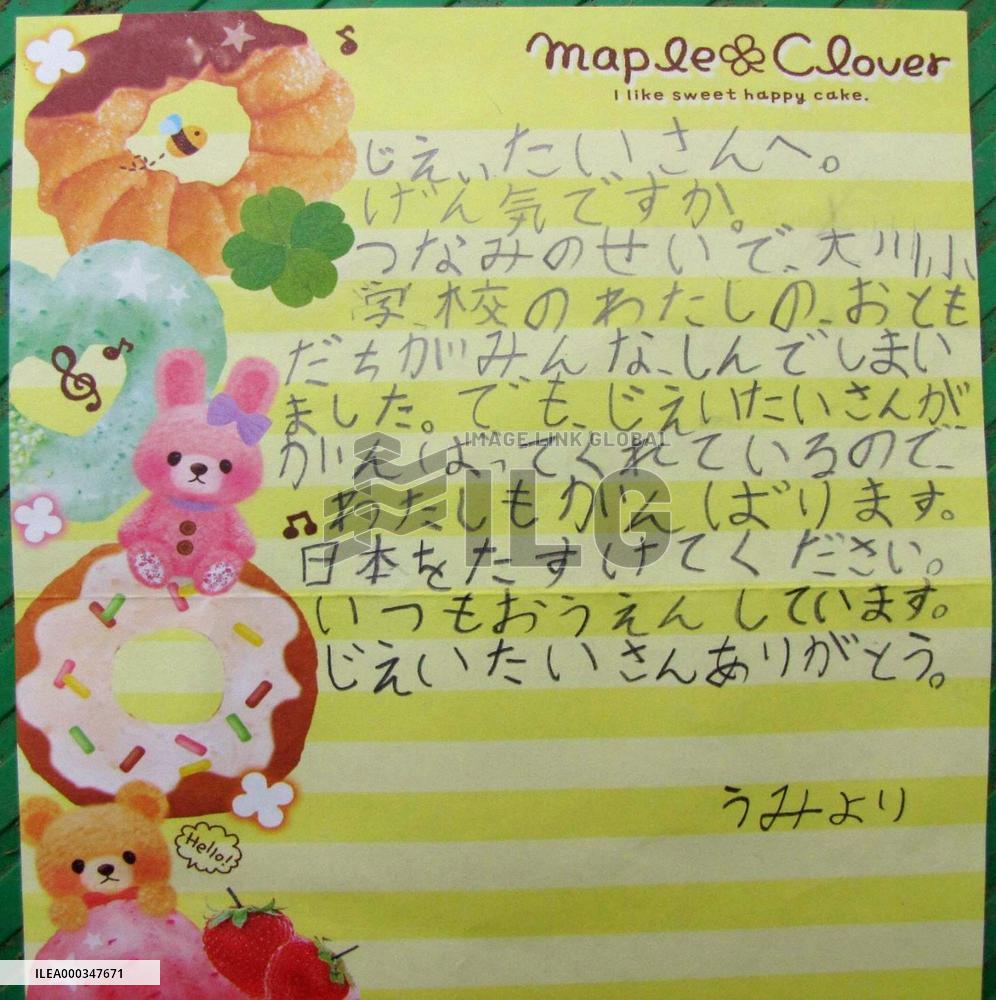 maple Clover
I like sweet happy cake.
じえぃたいさんへ。
げん気ですか。
つなみのせいで、大川小
学校のわたしの、おとも
だちがみんな、しんでしまい
ました。でも、じえいたいさんが
がんばってくれているので、
わたしもがんばります。
日本をたすけてください。
いつもおうえんしています。
じえいたいさんありがとう。
うみより
Hello!
IMAGE LINK GLOBAL
ILG
ILEA000347671